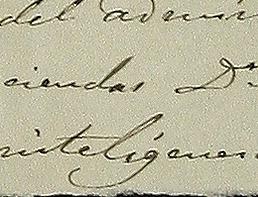 del admin
ciendas Dn
inteligenci